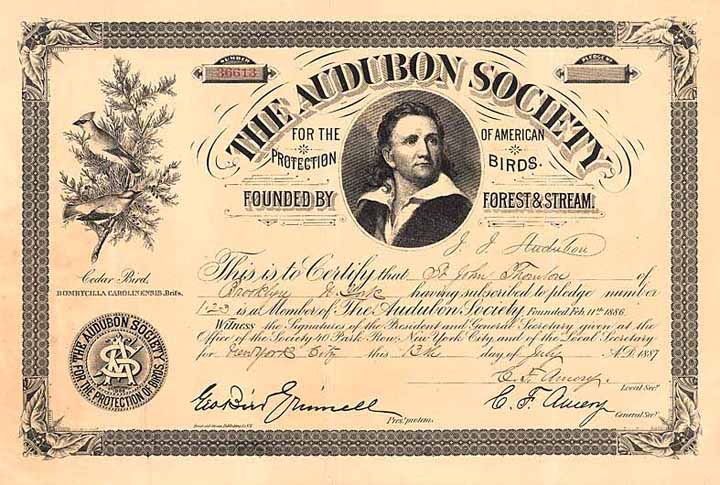 NUMBER
36613
PLEDGE
THE AUDUBON SOCIETY
FOR THE PROTECTION OF AMERICAN BIRDS.
FOUNDED BY FOREST & STREAM.
J. J. Audubon
Cedar Bird,
BOMBYCILLA CAROLINENSIS, Briss.
This is to Certify that St John Thornton of
Brooklyn N. York having subscribed to pledge number
1.2.3 is a Member of The Audubon Society Founded Feb. 11th 1886.
Witness the Signatures of the President and General Secretary given at the
Office of the Society 40 Park Row, New York City and of the Local Secretary
for New York City this 13th day of July A.D. 1887
C. F. Amery. Local Secy.
Geo Bird Grinnell C. F. Amery
Pres. pro tem. General Secy.
THE AUDUBON SOCIETY
FOR THE PROTECTION OF BIRDS